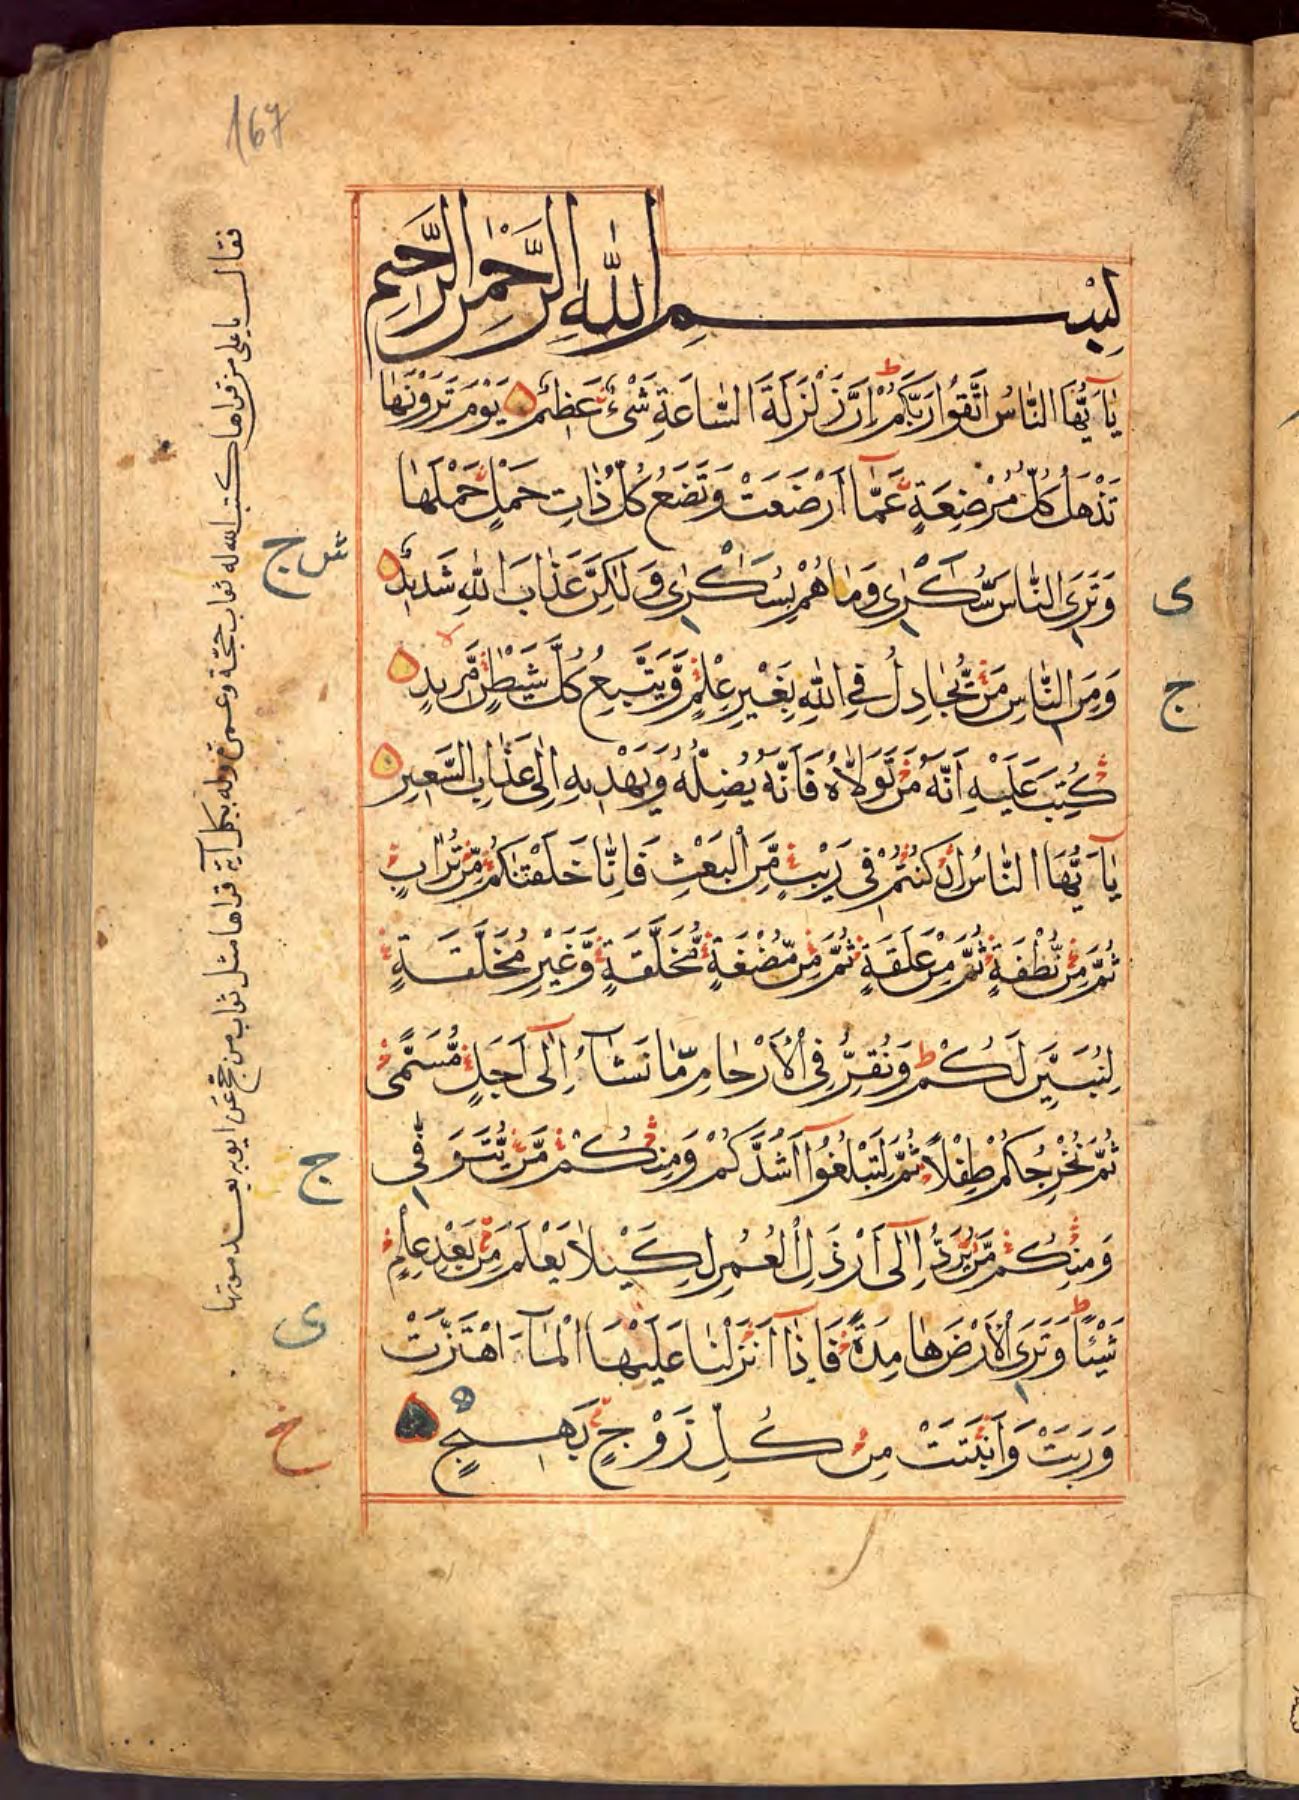 167
بِسْمِ اللّٰهِ الرَّحْمٰنِ الرَّحِيمِ
يٰٓاَيُّهَا النَّاسُ اتَّقُوا رَبَّكُمْ ط اِنَّ زَلْزَلَةَ السَّاعَةِ شَىْءٌ عَظِيمٌ يَوْمَ تَرَوْنَهَا
تَذْهَلُ كُلُّ مُرْضِعَةٍ عَمَّٓا اَرْضَعَتْ وَتَضَعُ كُلُّ ذَاتِ حَمْلٍ حَمْلَهَا
وَتَرَى النَّاسَ سُكَارٰى وَمَا هُمْ بِسُكَارٰى وَلٰكِنَّ عَذَابَ اللّٰهِ شَدِيدٌ
وَمِنَ النَّاسِ مَنْ يُّجَادِلُ فِى اللّٰهِ بِغَيْرِ عِلْمٍ وَّيَتَّبِعُ كُلَّ شَيْطٰنٍ مَّرِيدٍ
كُتِبَ عَلَيْهِ اَنَّهُ مَنْ تَوَلَّاهُ فَاَنَّهُ يُضِلُّهُ وَيَهْدِيهِ اِلٰى عَذَابِ السَّعِيرِ
يٰٓاَيُّهَا النَّاسُ اِنْ كُنْتُمْ فِى رَيْبٍ مِّنَ الْبَعْثِ فَاِنَّا خَلَقْنٰكُمْ مِّنْ تُرَابٍ
ثُمَّ مِنْ نُّطْفَةٍ ثُمَّ مِنْ عَلَقَةٍ ثُمَّ مِنْ مُّضْغَةٍ مُّخَلَّقَةٍ وَّغَيْرِ مُخَلَّقَةٍ
لِنُبَيِّنَ لَكُمْ ط وَنُقِرُّ فِى الْاَرْحَامِ مَا نَشَٓاءُ اِلٰٓى اَجَلٍ مُّسَمًّى
ثُمَّ نُخْرِجُكُمْ طِفْلًا ثُمَّ لِتَبْلُغُٓوا اَشُدَّكُمْ وَمِنْكُمْ مَّنْ يُّتَوَفّٰى
وَمِنْكُمْ مَّنْ يُّرَدُّ اِلٰٓى اَرْذَلِ الْعُمُرِ لِكَيْلَا يَعْلَمَ مِنْ بَعْدِ عِلْمٍ
شَيْئًا ط وَتَرَى الْاَرْضَ هَامِدَةً فَاِذَٓا اَنْزَلْنَا عَلَيْهَا الْمَٓاءَ اهْتَزَّتْ
وَرَبَتْ وَاَنْبَتَتْ مِنْ كُلِّ زَوْجٍ بَهِيجٍ
ى
ج
ش ج
ج
ى
خ
فقال يا على من قراها كتب الله له ثواب حجة وعمرة وله بكل آية قراها مثل ثواب من حج عن ابويه بعد موتها